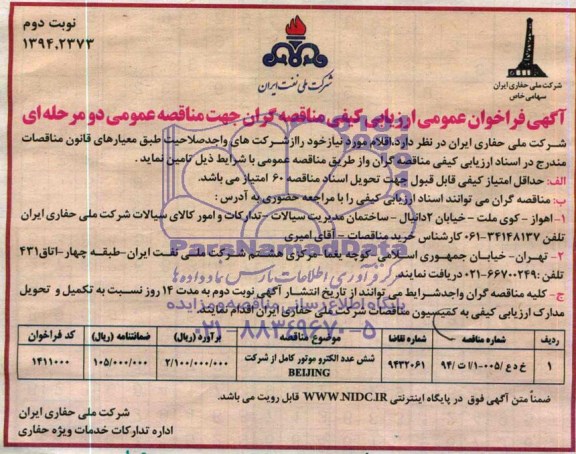 نوبت دوم
۱۳۹۴.۲۳۷۳
شرکت ملی نفت ایران
شرکت ملی حفاری ایران
سهامی خاص
آگهی فراخوان عمومی ارزیابی کیفی مناقصه گران جهت مناقصه عمومی دو مرحله ای
شرکت ملی حفاری ایران در نظر دارد.اقلام مورد نیاز خود را از شرکت های واجد صلاحیت طبق معیارهای قانون مناقصات
مندرج در اسناد ارزیابی کیفی مناقصه گران و از طریق مناقصه عمومی با شرایط ذیل تامین نماید .
الف: حداقل امتیاز کیفی قابل قبول جهت تحویل اسناد مناقصه ۶۰ امتیاز می باشد.
ب: مناقصه گران می توانند اسناد ارزیابی کیفی را با مراجعه حضوری به آدرس :
۱-اهواز - کوی ملت - خیابان ۲دانیال - ساختمان مدیریت سیالات - تدارکات و امور کالای سیالات شرکت ملی حفاری ایران
تلفن ۳۴۱۴۸۱۳۷-۰۶۱ کارشناس خرید مناقصات - آقای امیری
۲- تهران- خیابان جمهوری اسلامی-کوچه یغما مرکزی هشتم شرکت ملی نفت ایران-طبقه چهار-اتاق۴۳۱
تلفن:۶۶۷۰۰۲۴۹-۰۲۱ دریافت نمایند
ج - کلیه مناقصه گران واجدشرایط می توانند از تاریخ انتشار آگهی نوبت دوم به مدت ۱۴ روز نسبت به تکمیل و تحویل
مدارک ارزیابی کیفی به کمیسیون مناقصات شرکت ملی حفاری ایران اقدام نمایند.
پارس نماد داده ها
ParsNamadData
مرکز فرآوری اطلاعات پارس نماد داده ها
پایگاه اطلاع رسانی مناقصه و مزایده
۰۲۱-۸۸۳۴۹۶۷۰-۵
ردیف شماره مناقصه شماره تقاضا موضوع مناقصه برآورد (ریال) ضمانتنامه (ریال) کد فراخوان
۱ خ د ع /۰۰۵-۱/ا ت /۹۴ ۹۴۳۲۰۶۱ شش عدد الکترو موتور کامل از شرکت BEIJING ۲/۱۰۰/۰۰۰/۰۰۰ ۱۰۵/۰۰۰/۰۰۰ ۱۴۱۱۰۰۰
ضمناً متن آگهی فوق در پایگاه اینترنتی WWW.NIDC.IR قابل رویت می باشد.
شرکت ملی حفاری ایران
اداره تدارکات خدمات ویژه حفاری